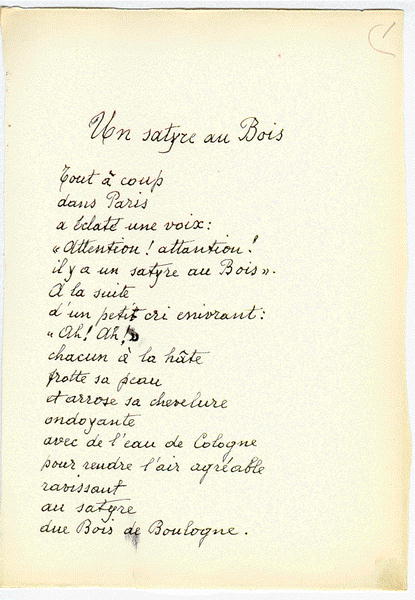 Un satyre au Bois
Tout à coup
dans Paris
a éclaté une voix:
« Attention! attantion!
il y a un satyre au Bois ».
A la suite
d'un petit cri enivrant:
« Ah! Ah! »
chacun à la hâte
frotte sa peau
et arrose sa chevelure
ondoyante
avec de l'eau de Cologne
pour rendre l'air agréable
ravissant
au satyre
due Bois de Boulogne.